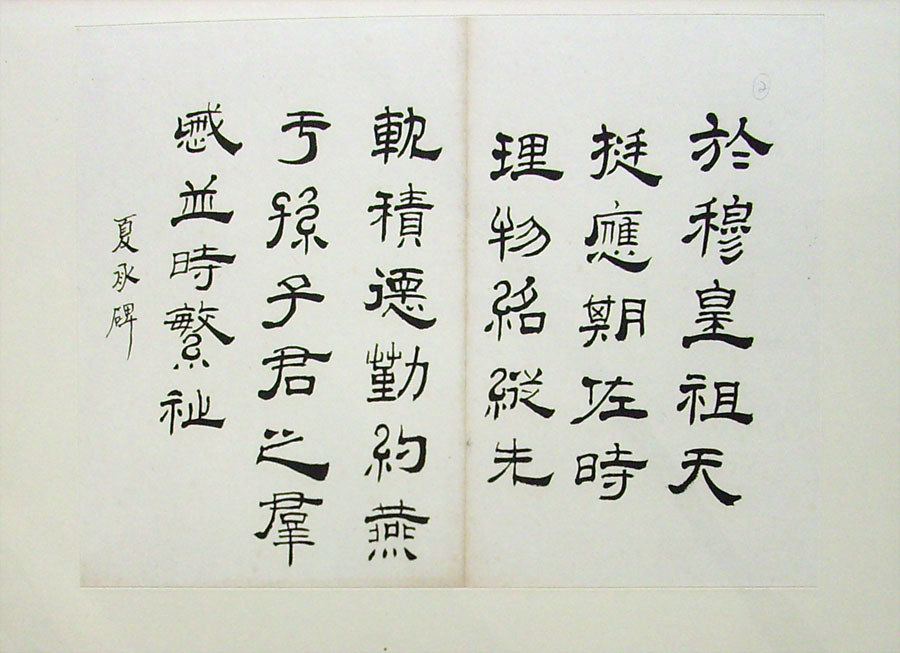 2
於穆皇祖天
挺應期佐時
理物紹縱先
軌積德勤約燕
于孫子君之羣
慼並時繁祉
夏承碑